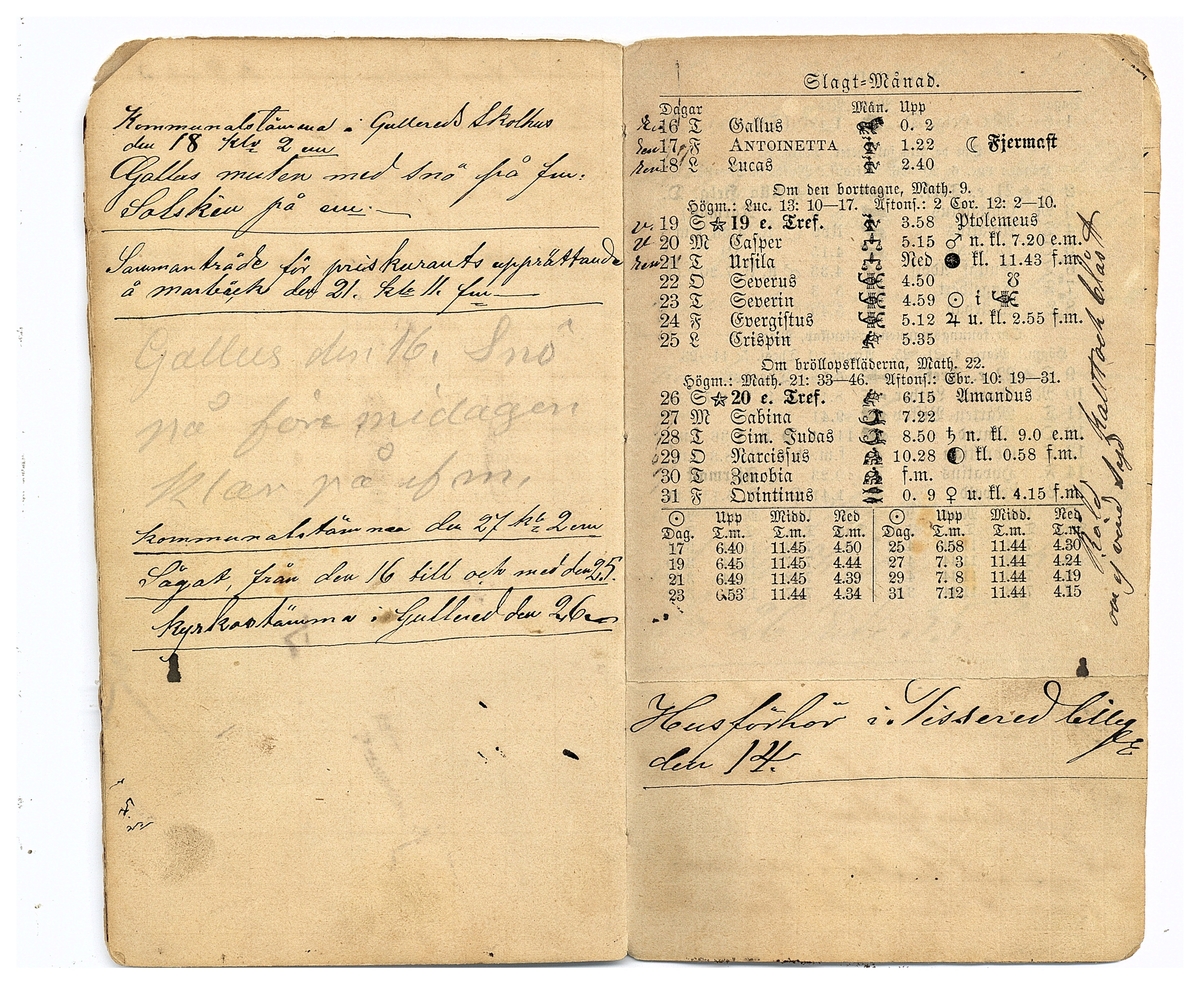 Kommunalstämma i Gullereds Skolhus
den 18 klo 2 em
Gallus mulen med snö på fm:
Solsken på em.
Sammanträde för priskurants upprättande
å marbäck den 21. kl 11 fm
Gallus den 16. Snö
på före midagen
Klar på efm.
Kommunalstämma den 27 kl 2 em
Sågat, från den 16 till och med den 25.
Kyrkostämma i Gullered den 26
Slagt-Månad.
Dagar Mån. Upp
16 T Gallus 0. 2
17 F ANTOINETTA 1.22 ☾ Fjermast
18 L Lucas 2.40
Om den borttagne, Math. 9.
Högm.: Luc. 13: 10—17. Aftons.: 2 Cor. 12: 2—10.
19 S ☆ 19 e. Tref. 3.58 Ptolemeus
20 M Casper 5.15 ♂ n. kl. 7.20 e.m.
21 T Ursila Ned ● kl. 11.43 f.m.
22 O Severus 4.50 ☋
23 T Severin 4.59 ☉ i
24 F Evergistus 5.12 ♃ u. kl. 2.55 f.m.
25 L Crispin 5.35
Om bröllopskläderna, Math. 22.
Högm.: Math. 21: 33—46. Aftons.: Ebr. 10: 19—31.
26 S ☆ 20 e. Tref. 6.15 Amandus
27 M Sabina 7.22
28 T Sim. Judas 8.50 ♄ n. kl. 9.0 e.m.
29 O Narcissus 10.28 ◐ kl. 0.58 f.m.
30 T Zenobia f.m.
31 F Qvintinus 0. 9 ♀ u. kl. 4.15 f.m.
☉ Upp Midd. Ned ☉ Upp Midd. Ned
Dag. T.m. T.m. T.m. Dag. T.m. T.m. T.m.
17 6.40 11.45 4.50 25 6.58 11.44 4.30
19 6.45 11.45 4.44 27 7. 3 11.44 4.24
21 6.49 11.45 4.39 29 7. 8 11.44 4.19
23 6.53 11.44 4.34 31 7.12 11.44 4.15
kallt och blåst
Husförhör i Tissered
den 14.